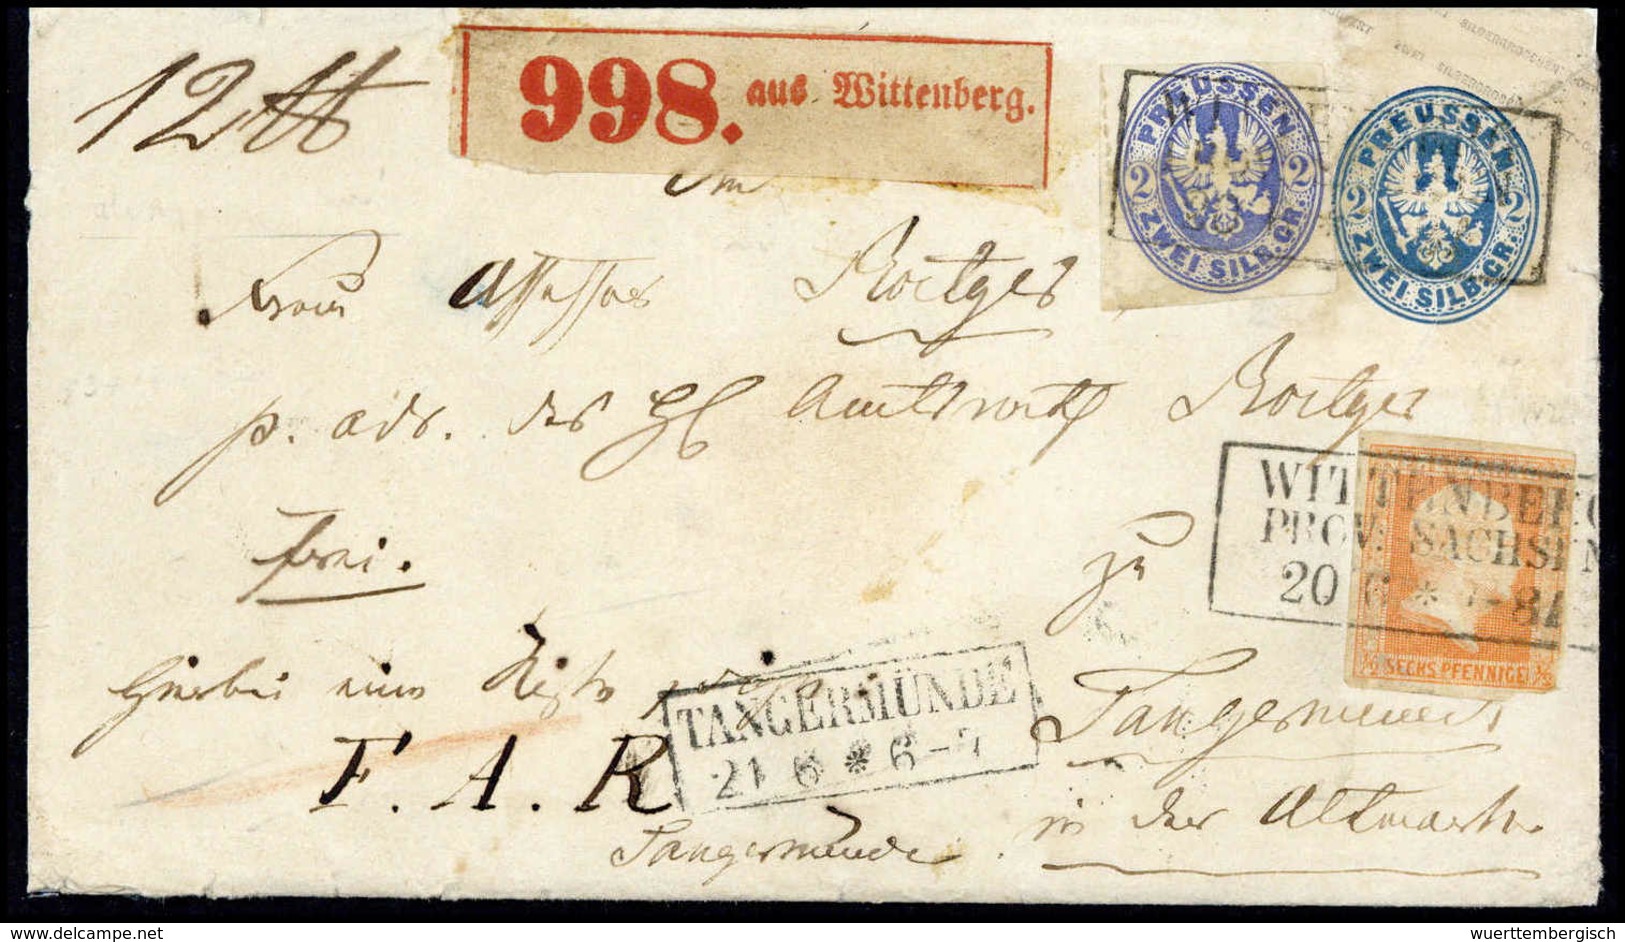 12 ℔
998. aus Wittenberg.
PREUSSEN
2 2
ZWEI SILB.GR.
PREUSSEN
2 2
ZWEI SILB.GR.
An
Frau Assessor Roitger
p. adr. des H Amtsrath Roitger
WITTENBERG
PROV. SACHSEN
20 6 *
½ SECHS PFENNIGE ½
frei.
zu
Hierbei eine Kiste
TANGERMÜNDE
21 6 * 6-7
Tangermünde
F. A. R
in der Altmark
Tangermünde
delcampe.net
wuerttembergisch